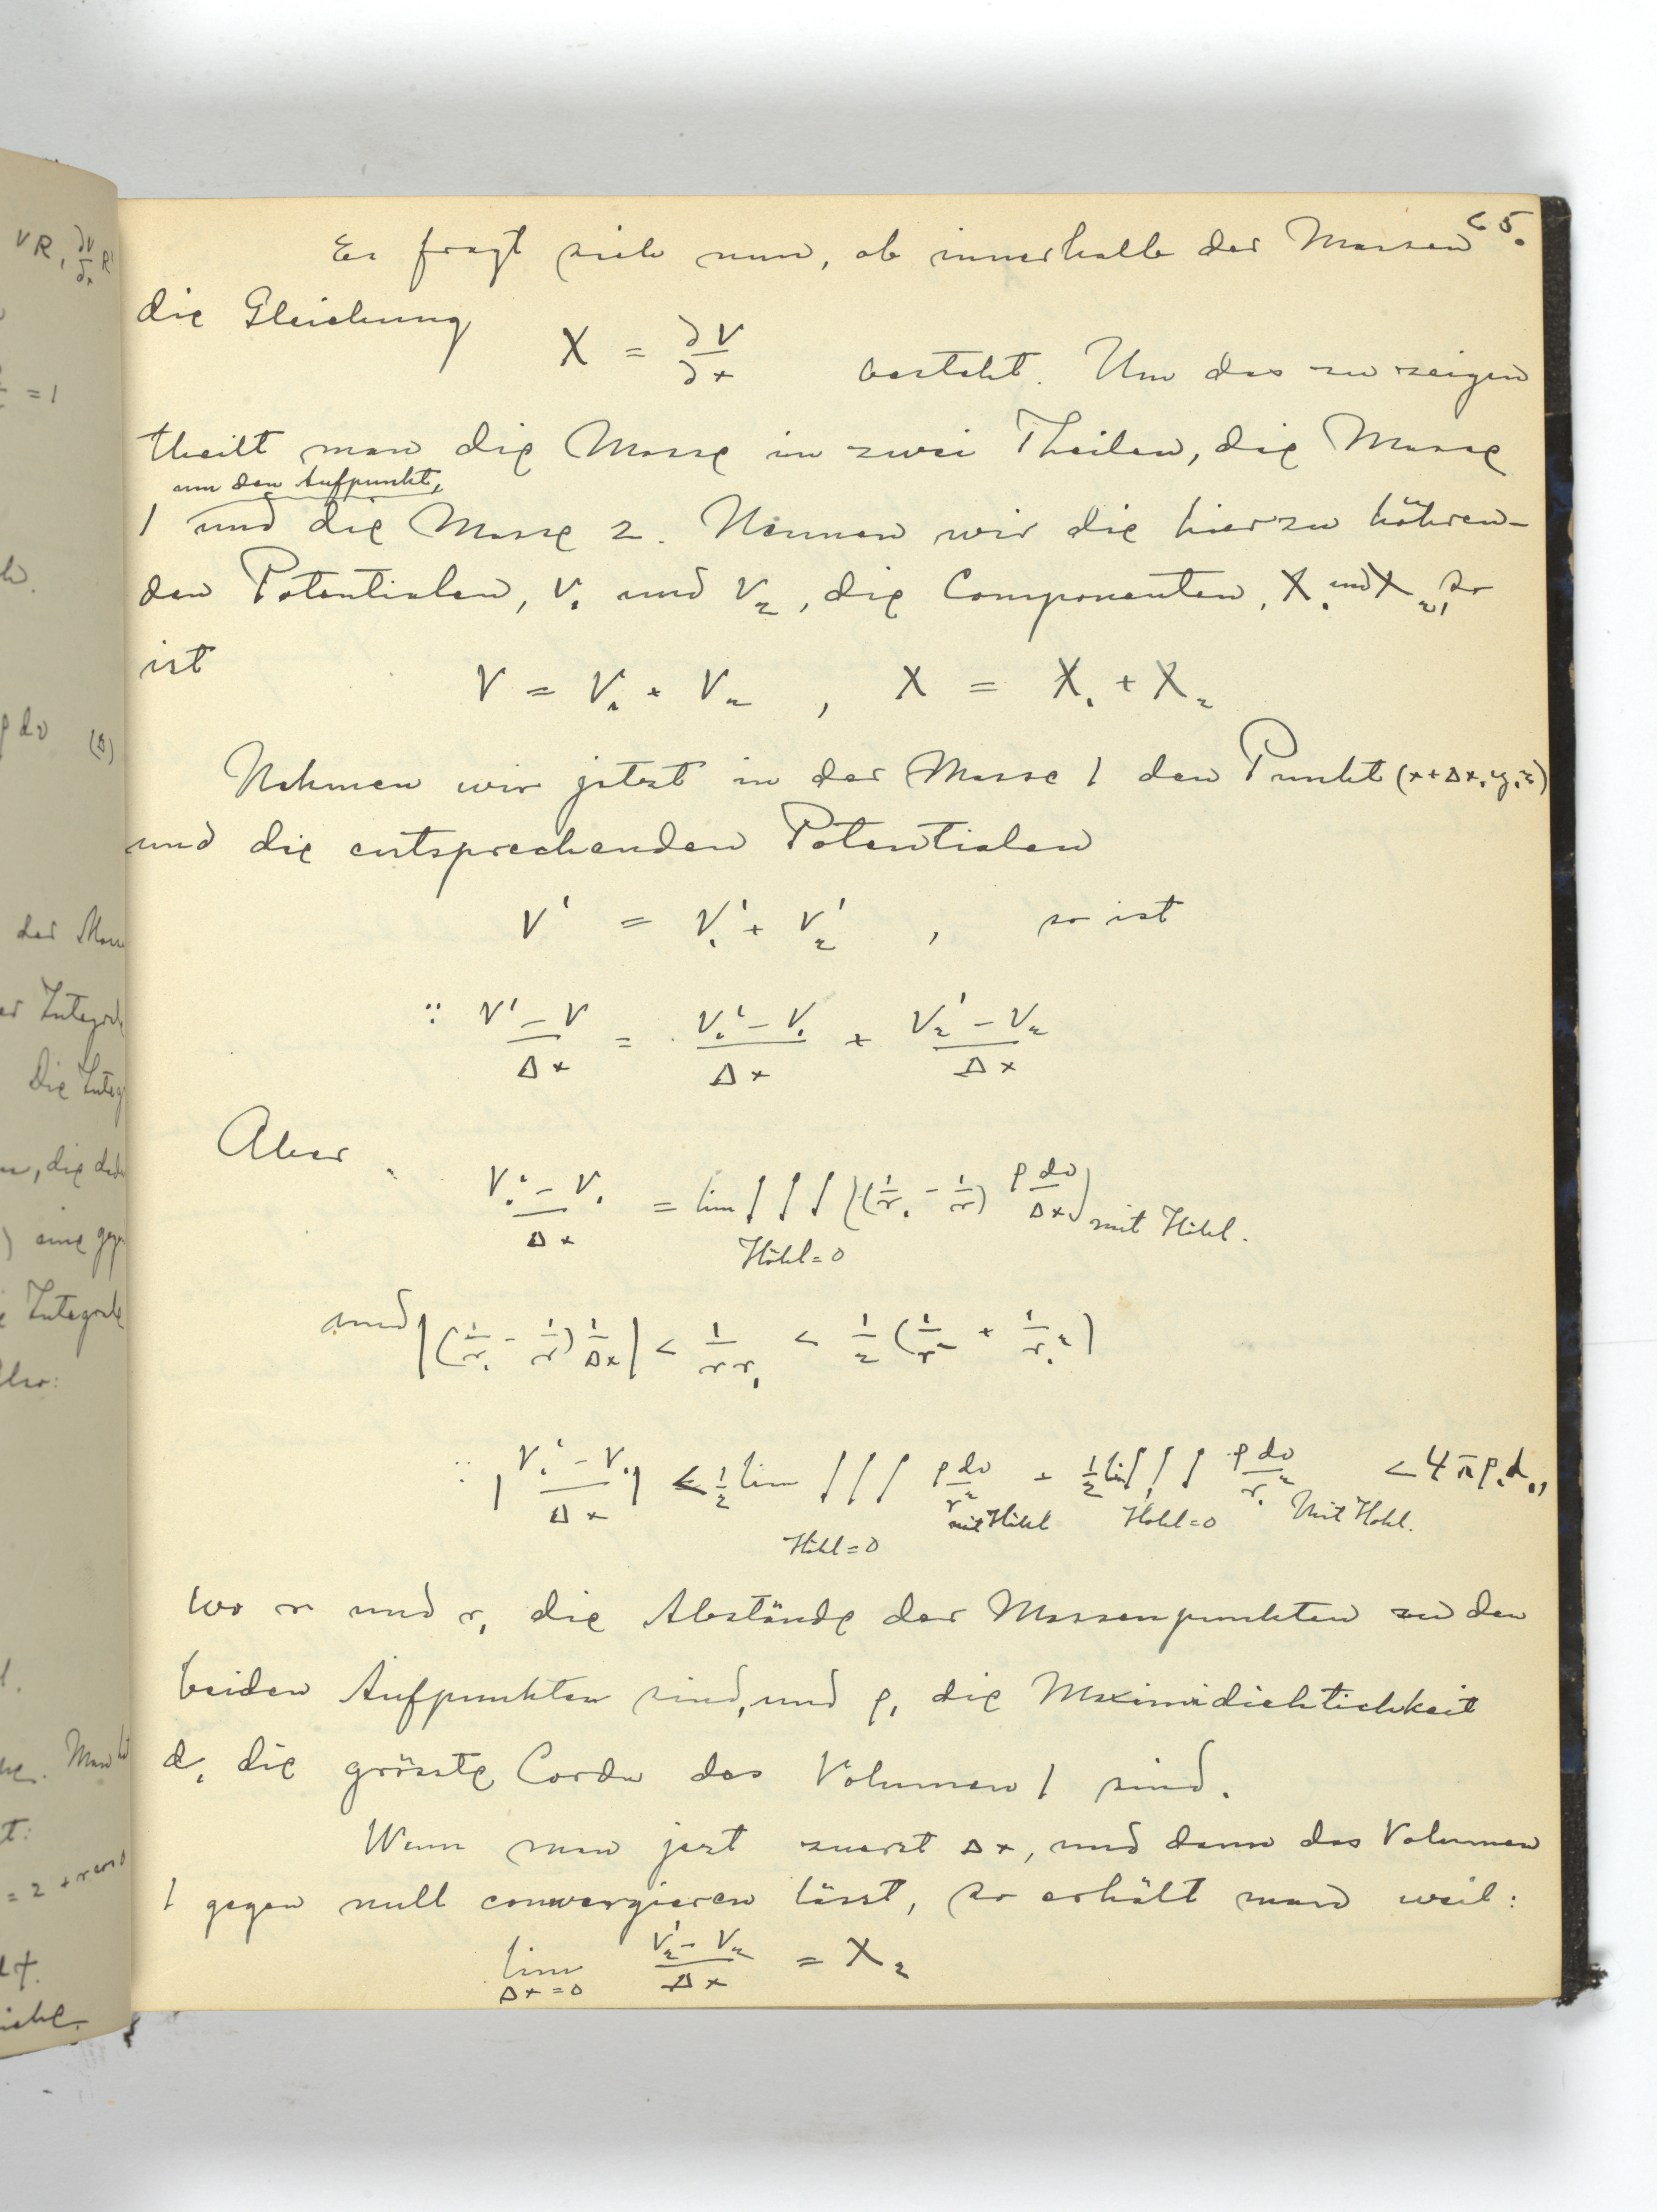 65.
Es fragt sich nun, ob innerhalb der Massen
die Gleichung
X = ∂V/∂x besteht. Um das zu zeigen
theilt man die Masse in zwei Theilen, die Masse
um den Aufpunkt,
1 und die Masse 2. Nennen wir die hierzu höhren-
den Potentialen, V₁ und V₂, die Componenten, X₁ und X₂, so
ist
V = V₁ + V₂ , X = X₁ + X₂
Nehmen wir jetzt in der Masse 1 den Punkt (x+Δx, y, z)
und die entsprechenden Potentialen
V' = V₁' + V₂' , so ist
∵ (V' - V)/Δx = (V₁' - V₁)/Δx + (V₂' - V₂)/Δx
Aber
(V₁' - V₁)/Δx = lim ∫∫∫ ((1/r₁ - 1/r) ρdv/Δx) mit Höhl.
Höhl = 0
und |(1/r₁ - 1/r) 1/Δx| < 1/rr₁ < 1/2 (1/r² + 1/r₁²)
∵ |(V₁' - V₁)/Δx| < 1/2 lim ∫∫∫ ρdv/r² + 1/2 lim ∫∫∫ ρdv/r₁² < 4πρ₁d₁,
mit Höhl Höhl = 0 Mit Hohl.
Höhl = 0
wo r und r₁ die Abstände der Massenpunkten zu den
beiden Aufpunkten sind, und ρ₁ die Maximidichtichkeit
d₁ die grösste Corda des Volumen 1 sind.
Wenn man jezt zuerst Δx, und dann das Volumen
1 gegen null convergieren lässt, so erhält man weil:
lim (V₂' - V₂)/Δx = X₂
Δx = 0
VR, ∂V/∂x R'
= 1
ρdv (Δ)